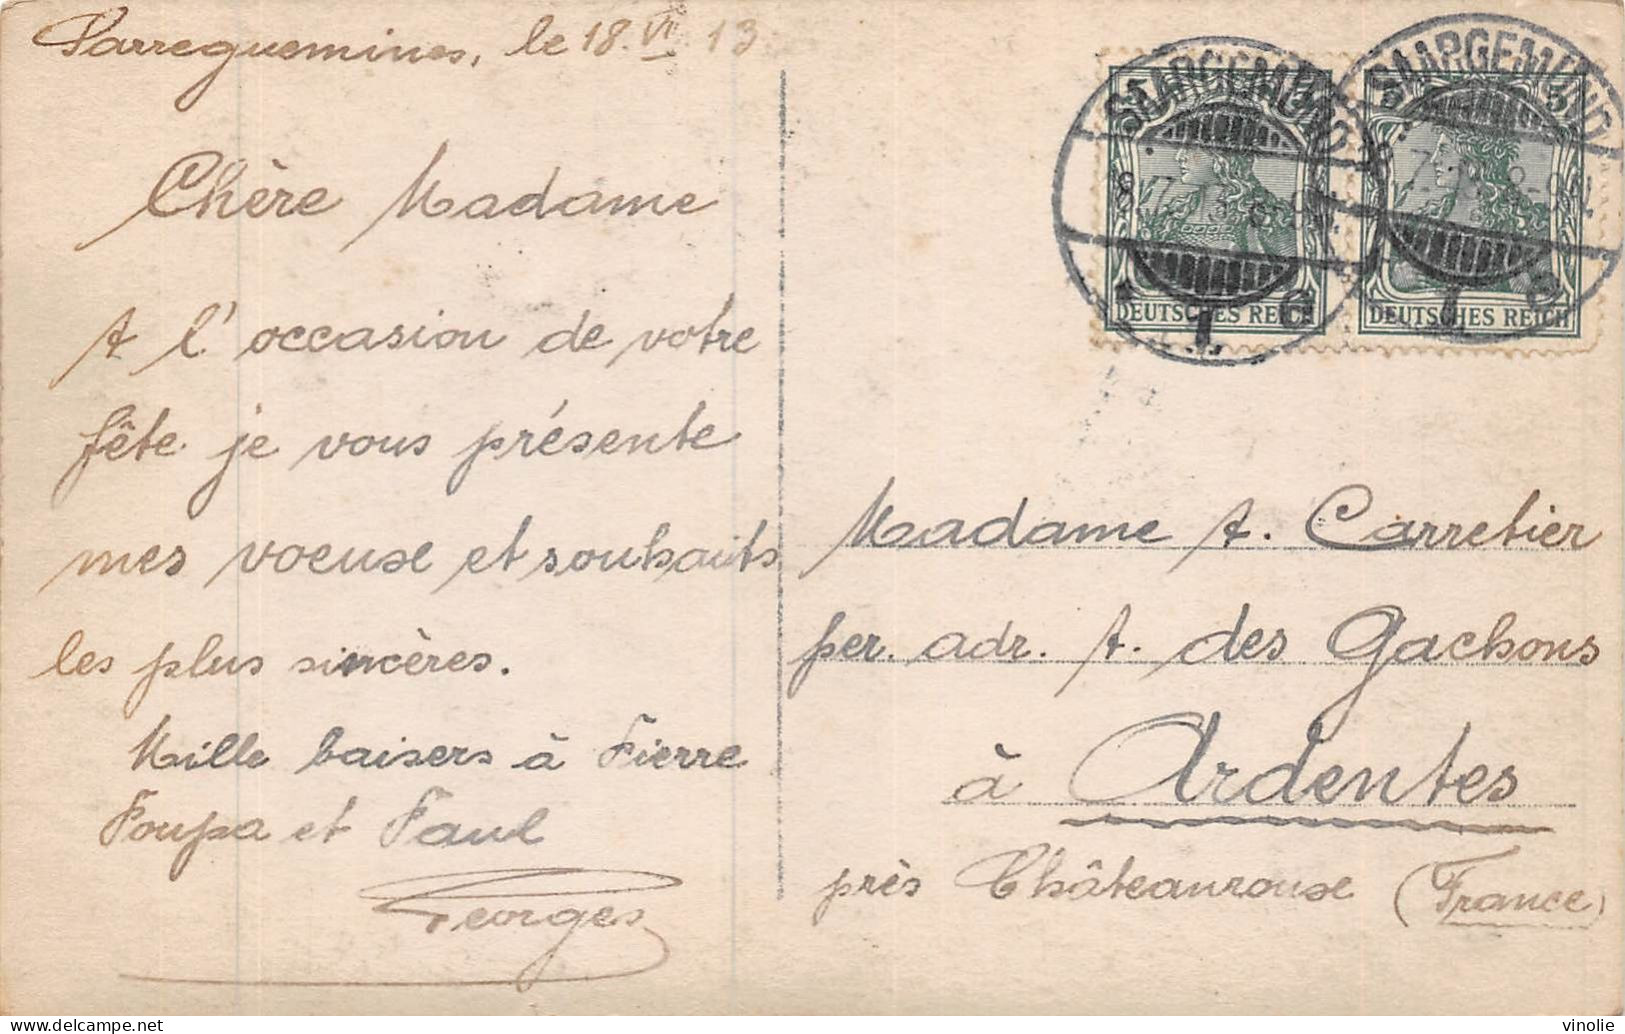 Sarreguemines, le 18. VII 13
Chère Madame
A l'occasion de votre
fête je vous présente
mes voeuse et souhaits
les plus sincères.
Mille baisers à Pierre
Poupa et Paul
Georges
SAARGEMÜND
SAARGEMÜND
DEUTSCHES REICH
DEUTSCHES REICH
Madame A. Carretier
per. adr. A. des Gachons
à Ardentes
près Châteaurouse (France)
vinolie